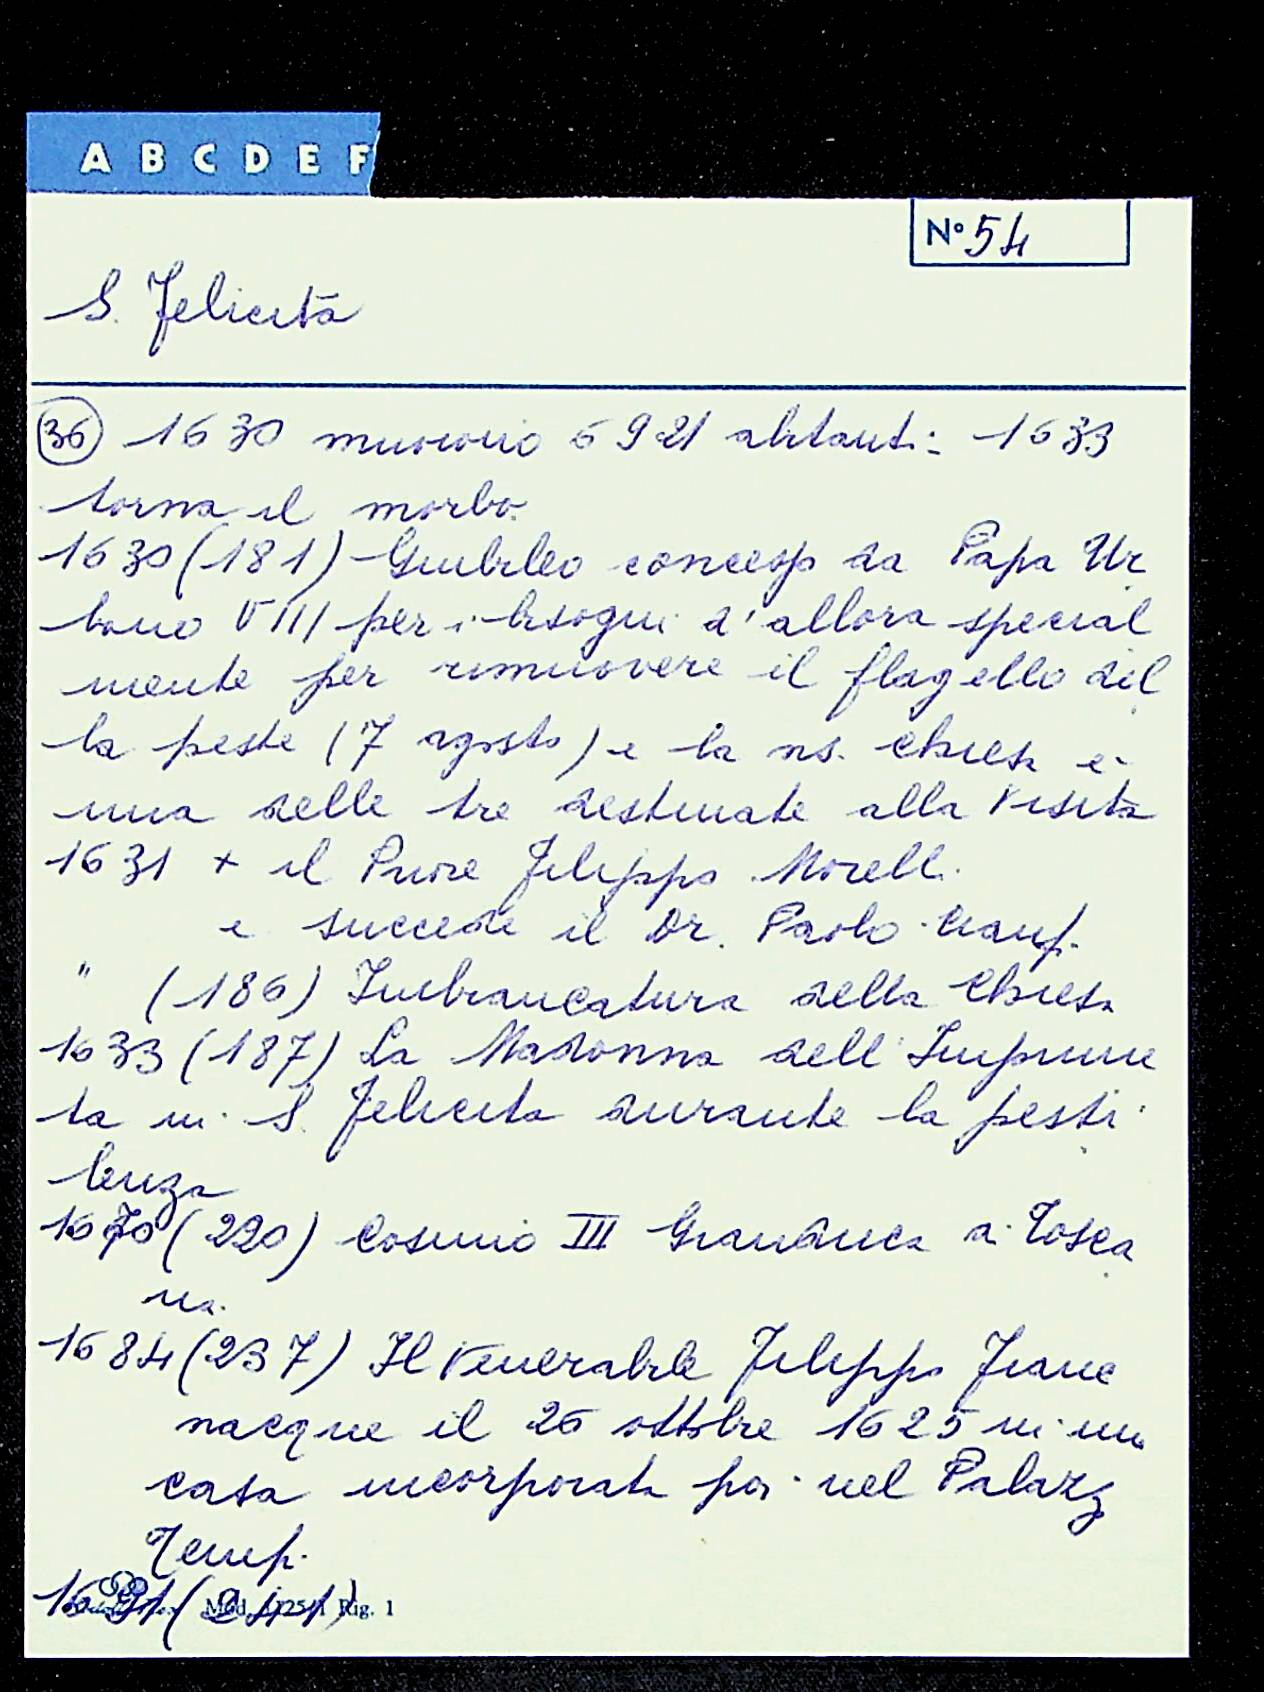 A B C D E F
N° 54
S. Felicità
36 1630 muoiono 6921 abitanti: 1633
torna il morbo.
1630 (181) Giubileo concesso da Papa Ur
bano VIII per i bisogni d'allora special
mente per rimuovere il flagello del
la peste (7 agosto) e la ns. Chiesa è
una delle tre destinate alla visita
1631 + il Priore Filippo Morelli
e succede il Dr. Paolo
" (186) Imbiancatura della Chiesa
1633 (187) La Madonna dell'Imprune
ta in S. Felicita durante la pesti
lenza
1670 (220) Cosimo III Granduca di Tosca
na.
1684 (237) Il Venerabile Filippo Franci
nacque il 26 ottobre 1625 in una
casa incorporata poi nel Palazzo
Tempi
1691 (241)
Mod. Rig. 1